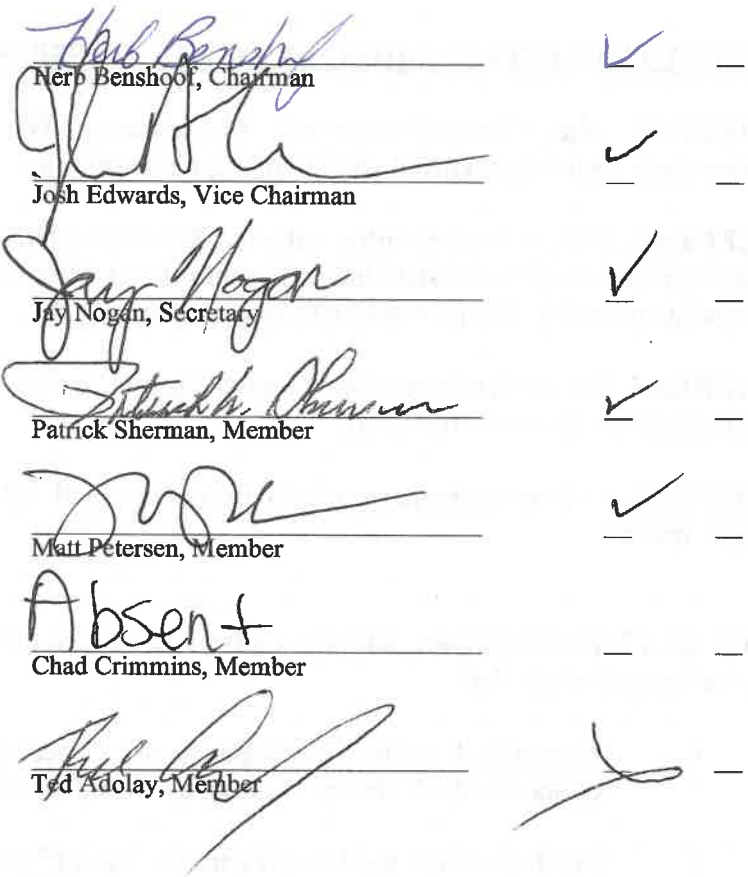 Herb Benshoof
Herb Benshoof, Chairman
Josh Edwards, Vice Chairman
Jay Nogan
Jay Nogan, Secretary
Patrick Sherman, Member
Matt Petersen, Member
Absent
Chad Crimmins, Member
Ted Adolay, Member